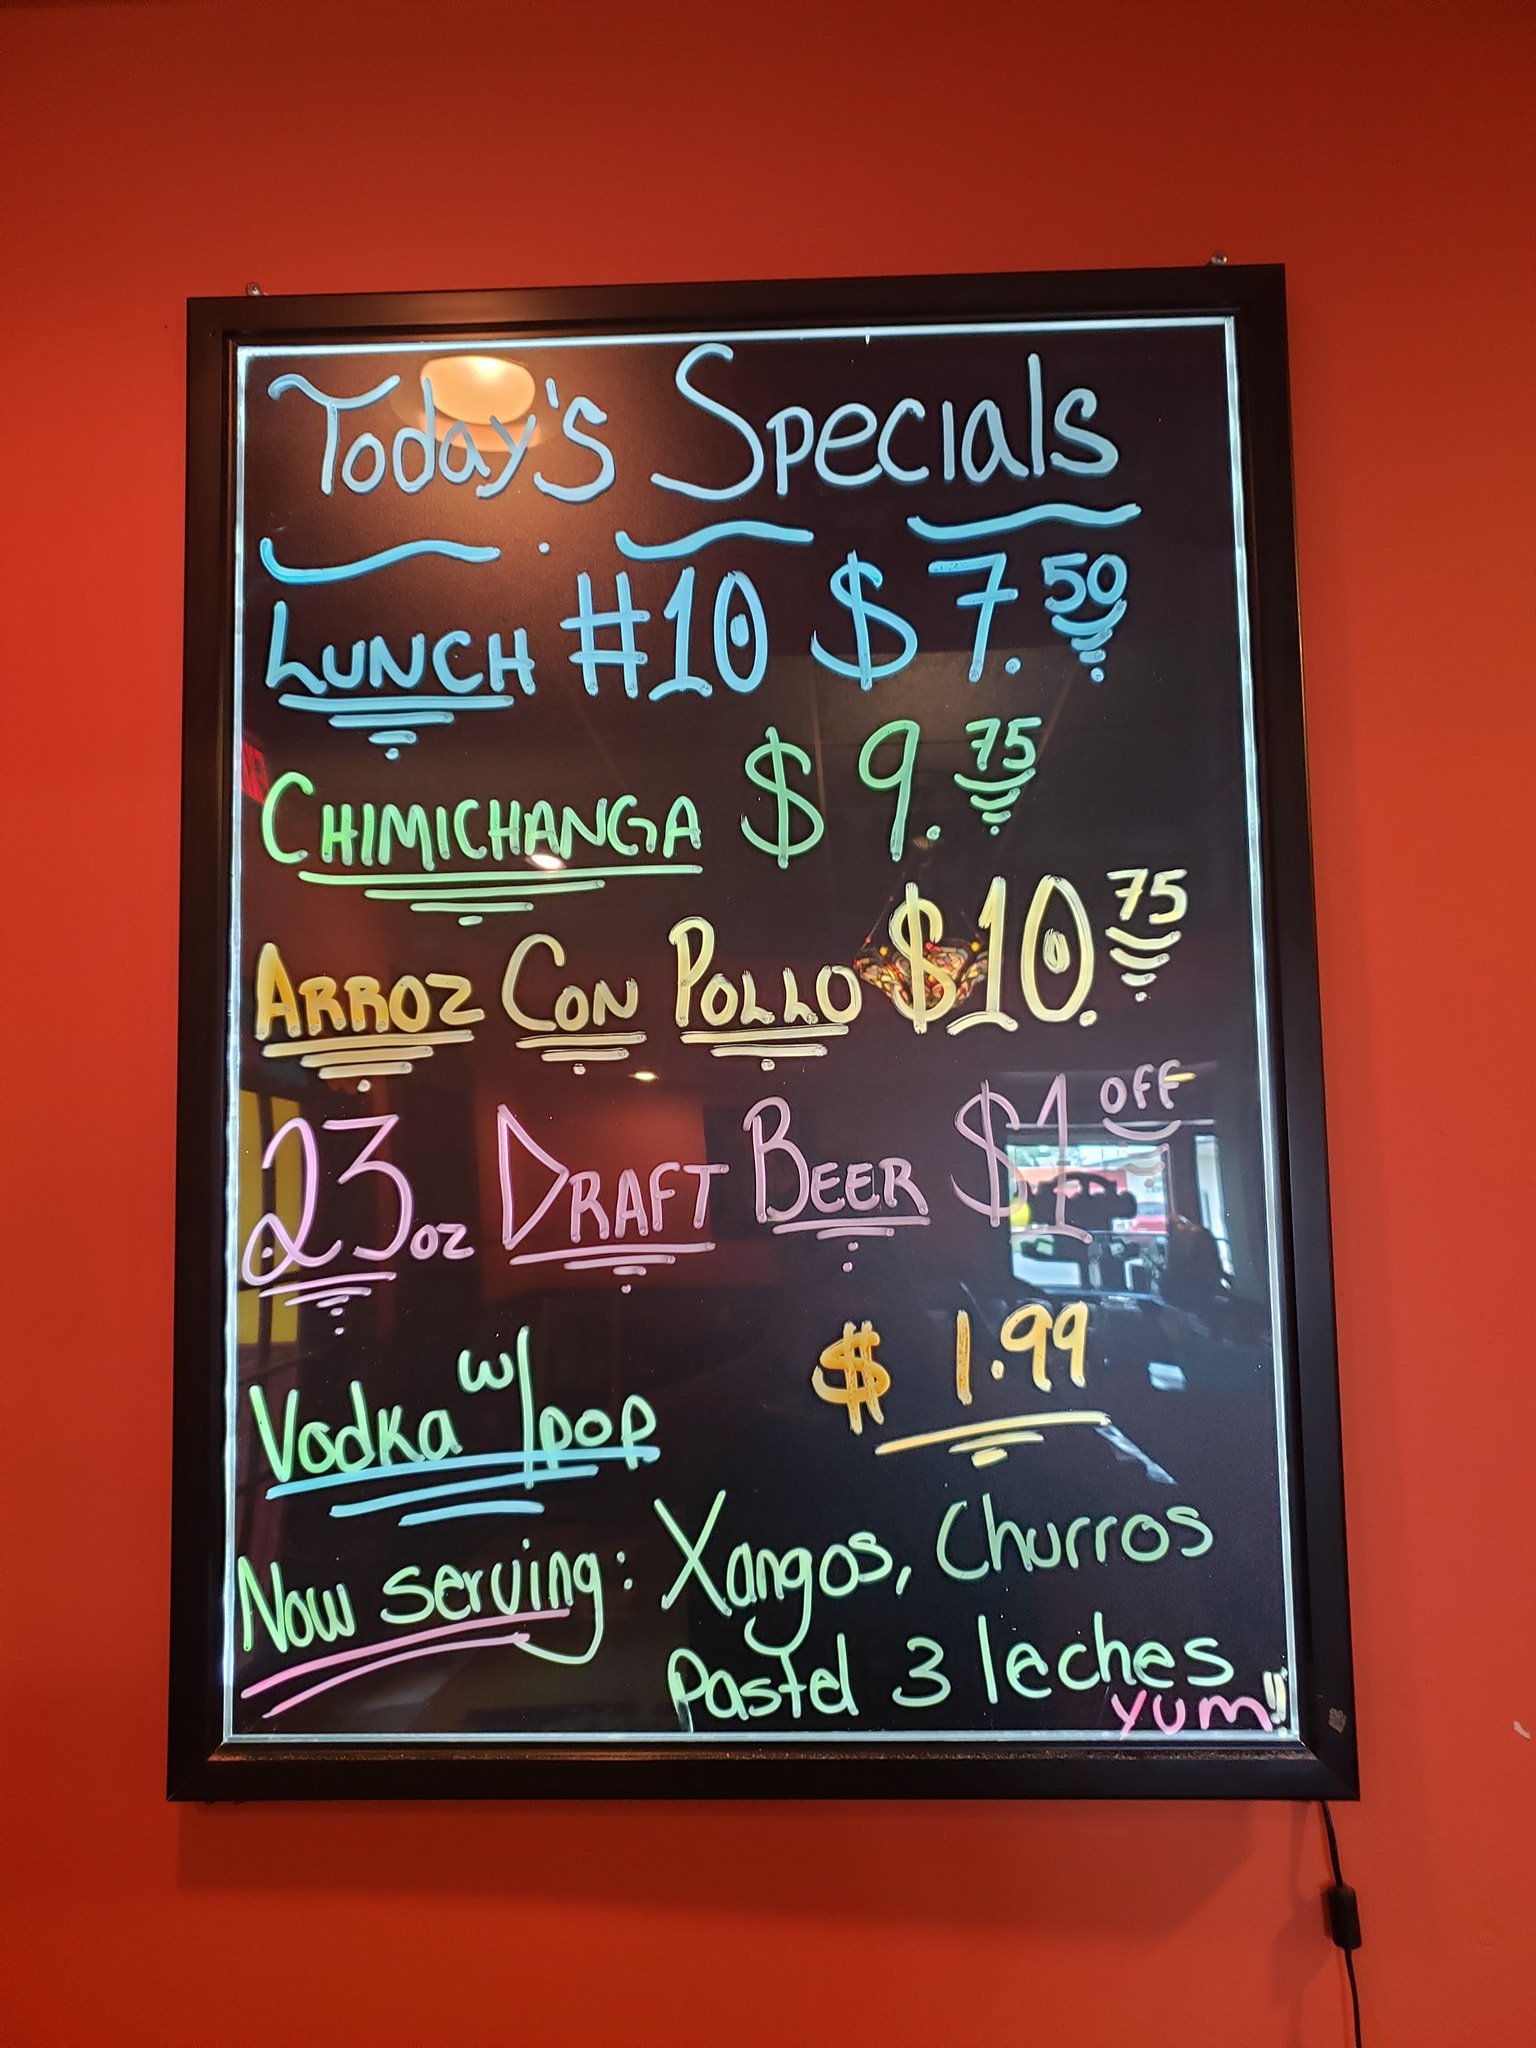 Today's Specials
LUNCH #10 $7.50
CHIMICHANGA $9.75
ARROZ CON POLLO $10.75
23oz DRAFT BEER $1 OFF
Vodka w/pop $1.99
Now serving: Xangos, Churros
Pastel 3 leches
YUM!!